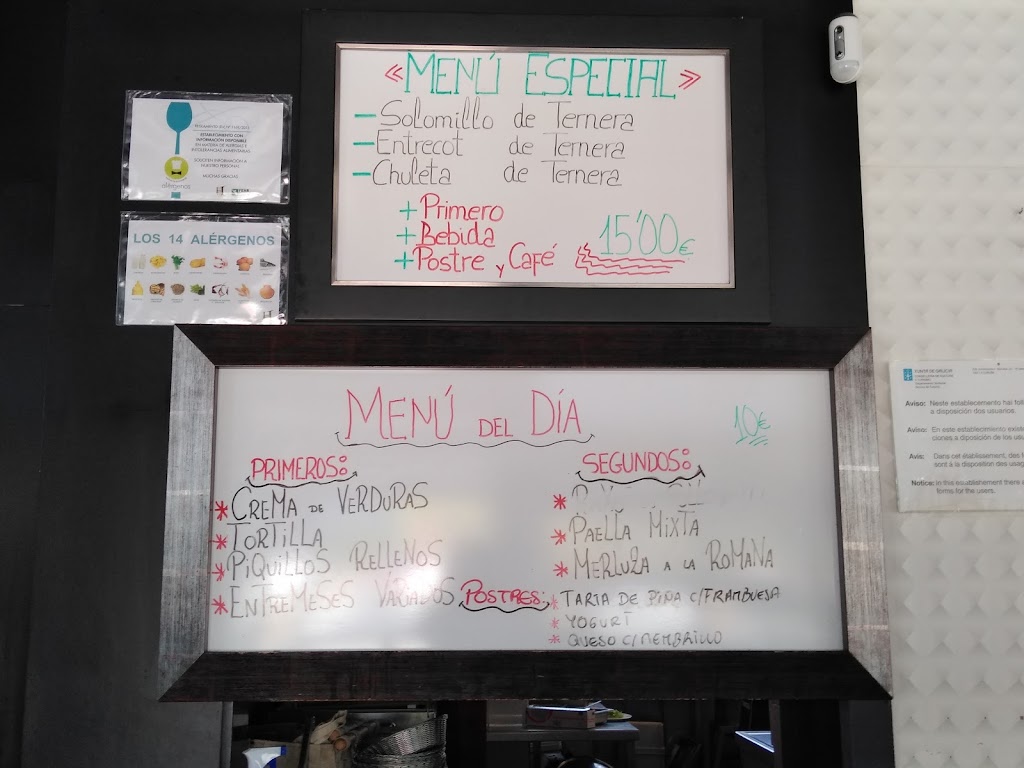 « MENÚ ESPECIAL »
- Solomillo de Ternera
- Entrecot de Ternera
- Chuleta de Ternera
+ Primero
+ Bebida
+ Postre y Café
15'00€
ESTABLECIMIENTO CON
INFORMACIÓN DISPONIBLE
EN MATERIA DE ALERGIAS E
INTOLERANCIAS ALIMENTARIAS
SOLICITEN INFORMACIÓN A
NUESTRO PERSONAL
MUCHAS GRACIAS
alérgenos
LOS 14 ALÉRGENOS
MENÚ DEL DÍA
10€
PRIMEROS:
* CREMA DE VERDURAS
* TORTILLA
* PIQUILLOS RELLENOS
* ENTREMESES VARIADOS
SEGUNDOS:
*
* PAELLA MIXTA
* MERLUZA A LA ROMANA
POSTRES:
* TARTA DE PIÑA C/FRAMBUESA
* YOGURT
* QUESO C/MEMBRILLO
XUNTA DE GALICIA
Aviso: Neste establecemento hai
a disposición dos usuarios.
Aviso: En este establecimiento
ciones a diposición de los
Avis: Dans cet établissement, des
sont à la disposition des
Notice: In this establishement there
forms for the users.